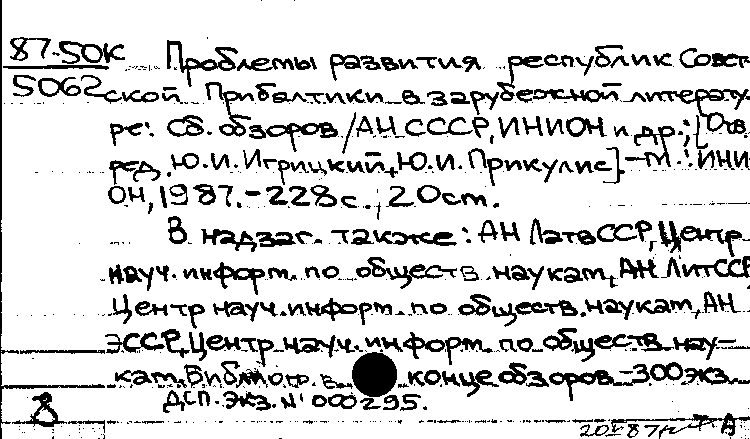 87-50К
5062
Проблемы развития республик Совет-
ской Прибалтики в зарубежной литерату-
ре: Сб. обзоров / АН СССР, ИНИОН и др.; [Отв.
ред. Ю.И. Игрицкий, Ю.И. Прикулис]. - М.: ИНИ
ОН, 1987. - 228 с., 20 см.
В надзаг. также: АН ЛатвССР, Центр
науч. информ. по обществ. наукам, АН ЛитССР,
Центр науч. информ. по обществ. наукам, АН
ЭССР, Центр науч. информ. по обществ. нау-
кам. Библиогр. в конце обзоров - 300 экз.
ДСП. Экз. N 000295.
8
А